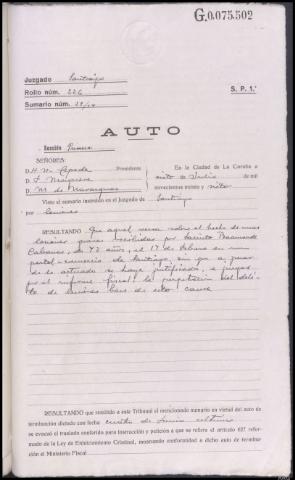 G.0.075.502
Juzgado Santiago
Rollo núm. 226
Sumario núm.
S. P. 1.ª
AUTO
Sección Primera
SEÑORES:
D. Presidente
D.
D. M. de
En la Ciudad de La Coruña a
siete de Julio de mil
novecientos treinta y siete
Visto el sumario instruído en el Juzgado de Santiago
por Lesiones
RESULTANDO Que aquel versa sobre el hecho de unas
lesiones graves recibidas por Jacinto Baamonde
Cabanas, de 42 años, el 17 de Febrero en un
portal-comercio de Santiago, sin que a pesar
de lo actuado se haya justificado, a juzgar
por el informe fiscal la perpetración del deli-
to de lesiones base de esta causa
RESULTANDO que remitido a este Tribunal el mencionado sumario en virtud del auto de
terminación dictado con fecha cuatro de Junio último
se evacuó el traslado conferido para instrucción y petición a que se refiere el artículo 627 refor-
mado de la Ley de Enjuiciamiento Criminal, mostrando conformidad a dicho auto de termina-
ción el Ministerio Fiscal